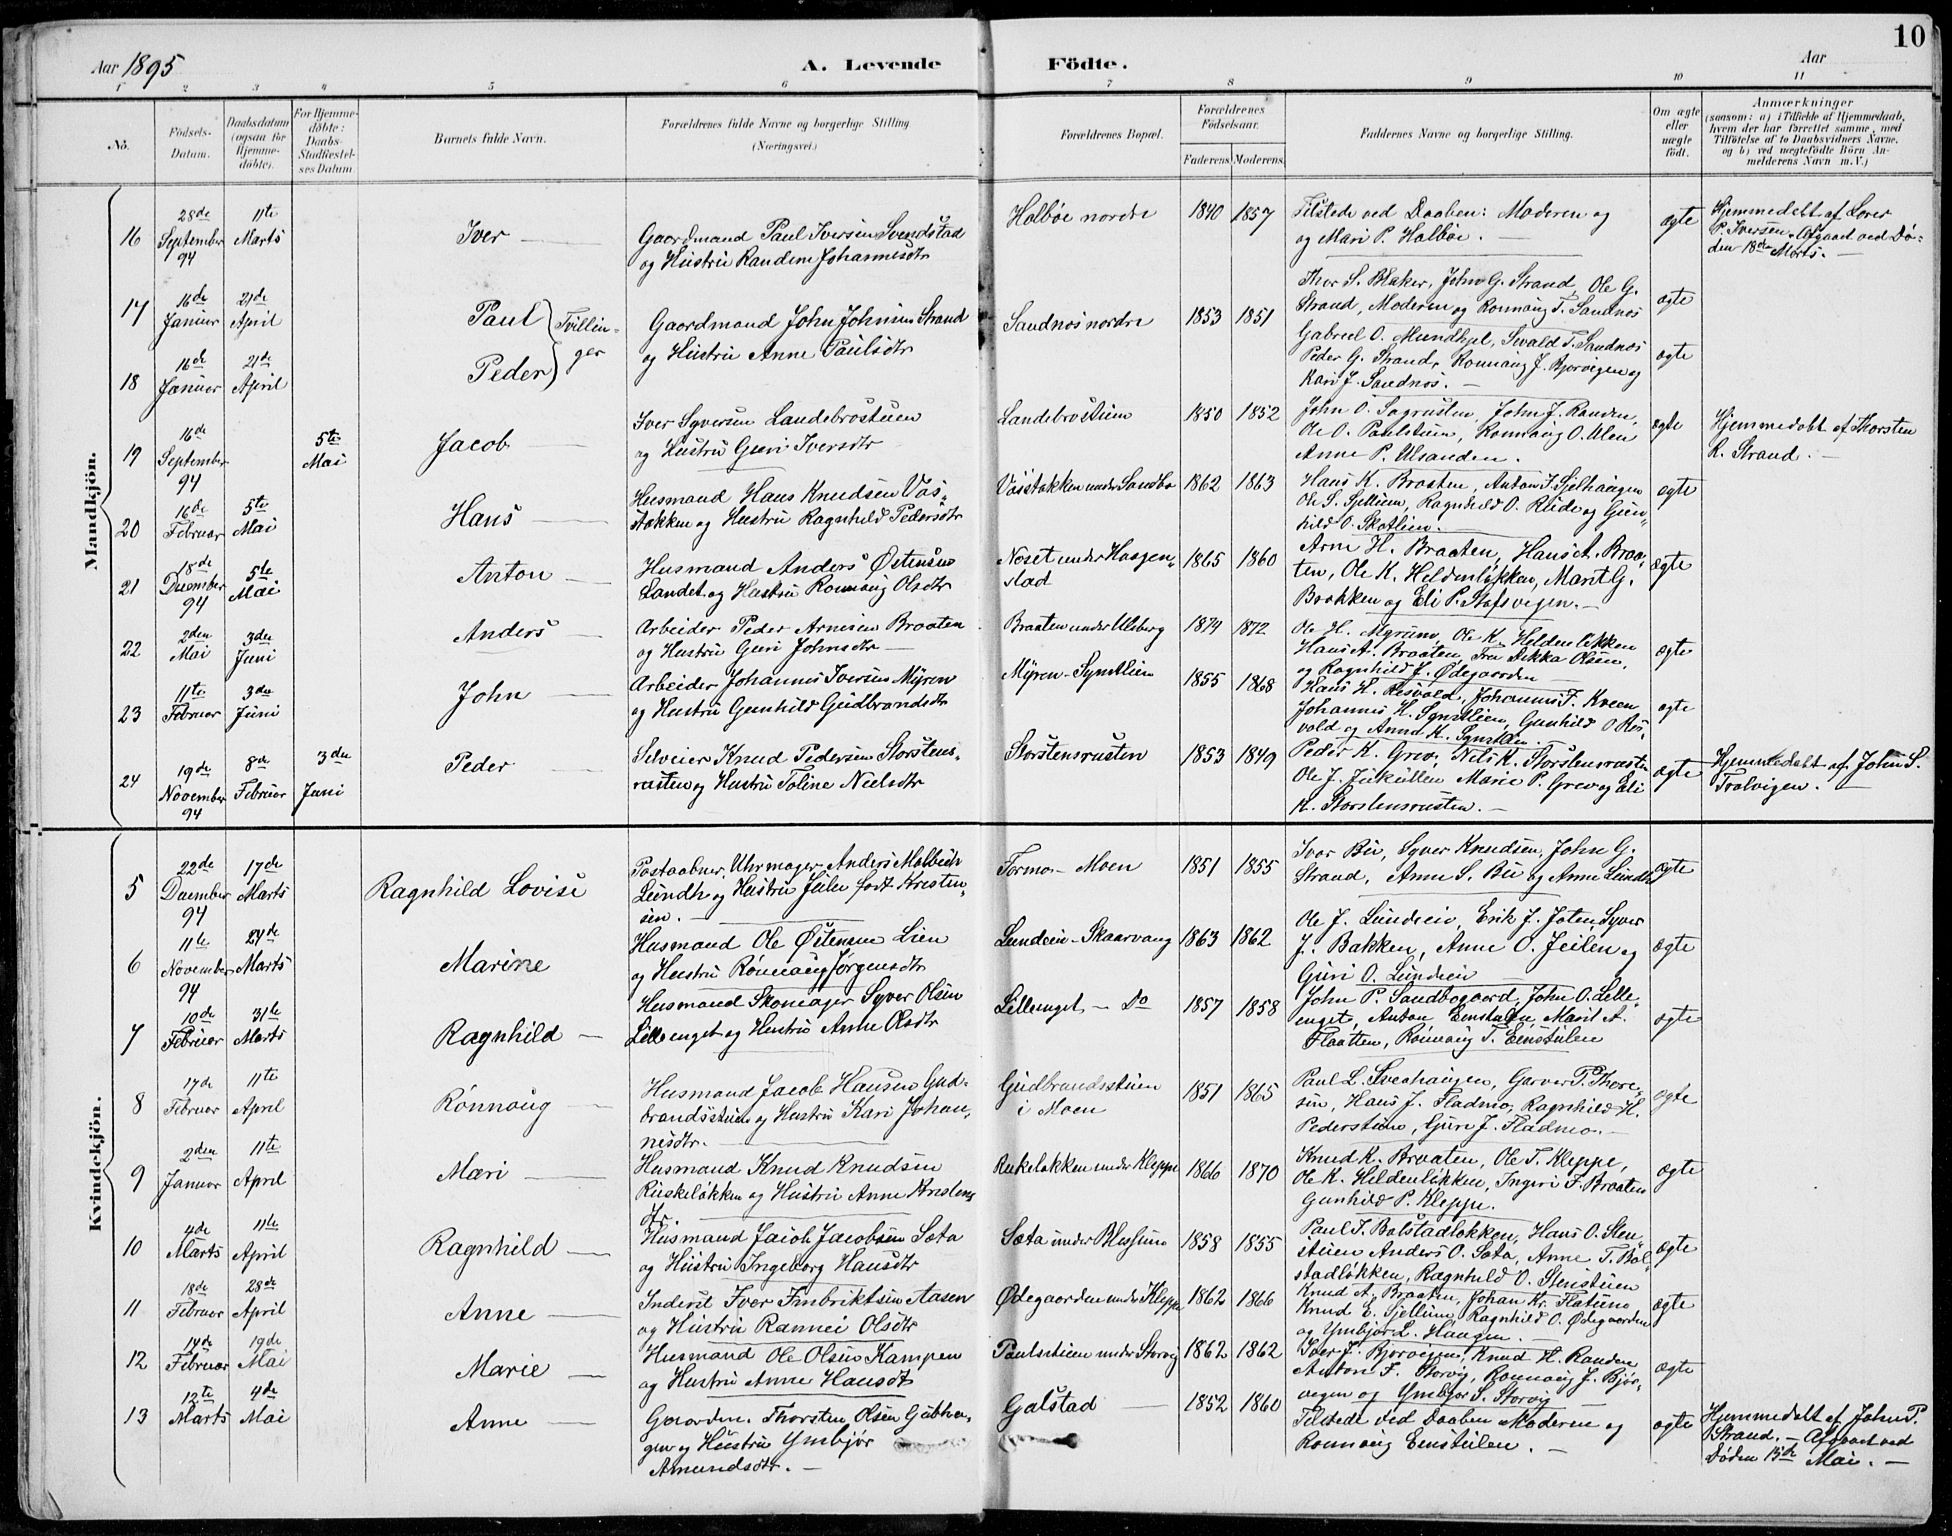 10
Aar 1895
A. Levende Födte.
Aar
1 2 3 4 5 6 7 8 9 10 11
No.
Födsels-Datum.
Daabsdatum (ogsaa för Hjemmedöbte).
For Hjemmedöbte: Daabs-Stadfæstelses Datum
Barnets fulde Navn.
Forældrenes fulde Navne og borgerlige Stilling (Næringsvei.)
Forældrenes Bopæl.
Forældrenes Födselsaar.
Faderens Moderens
Faddernes Navne og borgerlige Stilling.
Om ægte eller uægte födt.
Anmærkninger
(saasom: a) i Tilfælde af Hjemmedaab, hvem der har forrettet samme, med Tilföielse af to Daabsvidners Navne, og b) ved uægtefödte Börn Anmelderens Navn m.V.)
Mandkjön.
16 28de September 94 11te Marts Iver — Gaardmand Paul Iversen Svendstad og Hustru Randine Johannesdtr Halböe nordre 1840 1857 Tilstede ved Daaben: Moderen og og Mari P. Halböe. — ægte Hjemmedøbt af Lærer P. Iversen. Afgaaet ved Døden 18de Marts. —
17 16de Januar 21de April Paul Tvillinger Gaardmand John Johnsen Strand og Hustru Anne Paulsdtr Sandnes nordre 1853 1851 Thor S. Blaker, John G. Strand, Ole G. Strand, Moderen og Rønnaug T. Sandnes ægte
18 16de Januar 21de April Peder Gabriel O. Mundhjel, Sevald T. Sandnes Peder G. Strand, Rønnaug J. Bjorvigen og Kari J. Sandnes. — ægte
19 16de September 94 5te Mai Jacob — Iver Syversen Landebrostuen og Hustru Guri Iversdtr Landebrostuen 1850 1852 John O. Sagrusten, John J. Randen, Ole O. Paulstuen, Rønnaug O. Ulen Anne P. Ulsanden. ægte Hjemmedøbt af Thorsten R. Strand. —
20 16de Februar 5te Mai Hans — Husmand Hans Knudsen Vasstøkken og Hustru Ragnhild Pedersdtr Vasstøkken under Sandbo 1862 1863 Hans K. Braaten, Anton J. Sjelhaugen Ole S. Sjellium, Ragnhild O. Rüde og Gunhild O. Skotlien. — ægte
21 18de December 94 5te Mai Anton — Husmand Anders Østensen Landet og Hustru Rønnaug Olsdtr Noset under Haagenstad 1865 1860 Arne H. Braaten, Hans A. Braaten, Ole K. Heldenløkken, Marit G. Brokken og Eli P. Stafsvigen. — ægte
22 2den Mai 3die Juni Anders — Arbeider Peder Arnesen Braaten og Hustru Guri Johnsdtr — Braaten under Ulsberg 1874 1872 Ole H. Myrum, Ole K. Heldenløkken Hans A. Braaten, Fru Dekka Olsen, og Ragnhild J. Ødegaarden ægte
23 11te Februar 3die Juni John — Arbeider Johannes Iversen Myren og Hustru Gunhild Gudbrandsdtr Myren - Synstlien 1855 1868 Hans H. Resvold, Johannes F. Kveen Johannes K. Synstlien, Gunhild O Resvold og Anne K. Synstlien. ægte
24 19de November 94 8de Februar 3die Juni Peder — Selveier Knud Pedersen Storstensrusten og Hustru Toline Nielsdtr Storstensrusten 1853 1849 Peder K. Grev, Nils K. Storstensrusten Ole J. Jukullen Marie P. Grev og Eli K. Storstensrusten. — ægte Hjemmedøbt af John S. Tralvigen. —
Kvindekjön.
5 22de December 94 17de Marts Ragnhild Lovise Postaabner, Uhrmager Anders Malbech Lundh og Hustru Julie født Kristensen. Tormo - Moen 1851 1855 Ivar Bu, Syver Knudsen, John G. Strand, Anne S. Bu og Anne Lundh ægte
6 11te November 94 24de Marts Marine Husmand Ole Østensen Lien og Hustru Rønnaug Jørgensdtr Lundein - Skaarvang 1863 1862 Ole J. Lundein, Erik J. Joten, Syver J. Bakken, Anne O. Jeilen og Guri O. Lundein ægte
7 10de Februar 31te Marts Ragnhild — Husmand Skomager Syver Olsen Lilleenget og Hustru Anne Olsdtr Lilleenget - Do 1857 1858 John P. Sandbogaard, John O. Lilleenget, Anton Enstulen, Marit A. Flaatten, Rønnaug T. Eenstulen ægte
8 17de Februar 11te April Rønnaug — Husmand Jacob Hansen Gudbrandsstuen og Hustru Kari Johannesdtr. Gudbrandsstuen i Moen 1851 1865 Paul L. Sveahaugen, Garver P. Thoresen, Hans J. Fladmo, Ragnhild H. Pederstuen, Guri J. Fladmo. — ægte
9 2den Januar 11te April Mari — Husmand Knud Knudsen Ruskeløkken og Hustru Anne Kristensdtr. Ruskeløkken under Kleppe 1866 1870 Knud K. Braaten, Ole T. Kleppe, Ole K. Heldenløkken, Ingeri F. Braaten Gunhild P. Kleppe. ægte
10 4de Marts 11te April Ragnhild — Husmand Jacob Jacobsen Sæta og Hustru Ingeborg Hansdtr Sæta under Blessum 1858 1855 Paul J. Bolstadløkken, Hans O. Stenstuen Anders O. Sæta, Anne T. Bolstadløkken, Ragnhild O. Stenstuen ægte
11 18de Februar 28de April Anne — Inderst Iver Fredriktsen Aasen og Hustru Rannei Olsdtr Ødegaarden under Kleppe 1862 1866 Knud A. Braaten, Johan Kr. Flatum Knud E. Sjellum, Ragnhild O. Ødegaarden og Ymbjør L. Haugen. — ægte
12 14de Februar 19de Mai Marie — Husmand Ole Olsen Kampen og Hustru Anne Hansdt Paulsstuen under Storvig 1862 1862 Iver J. Bjorvigen, Knud H. Randen Anton F. Storvig, Rønnaug J. Bjørvegen og Ymbjør S. Storvig ægte
13 12te Marts 4de Mai Anne — Gaarden. Thorsten Olsen Gubhaugen og Hustru Ymbjør Amundsdtr. — Galstad — 1852 1860 Tilstede ved Daaben Moderen og Rønnaug Eenstulen. — ægte Hjemmedøbt af John P. Strand. — Afgaaet ved Døden 15de Mai. —